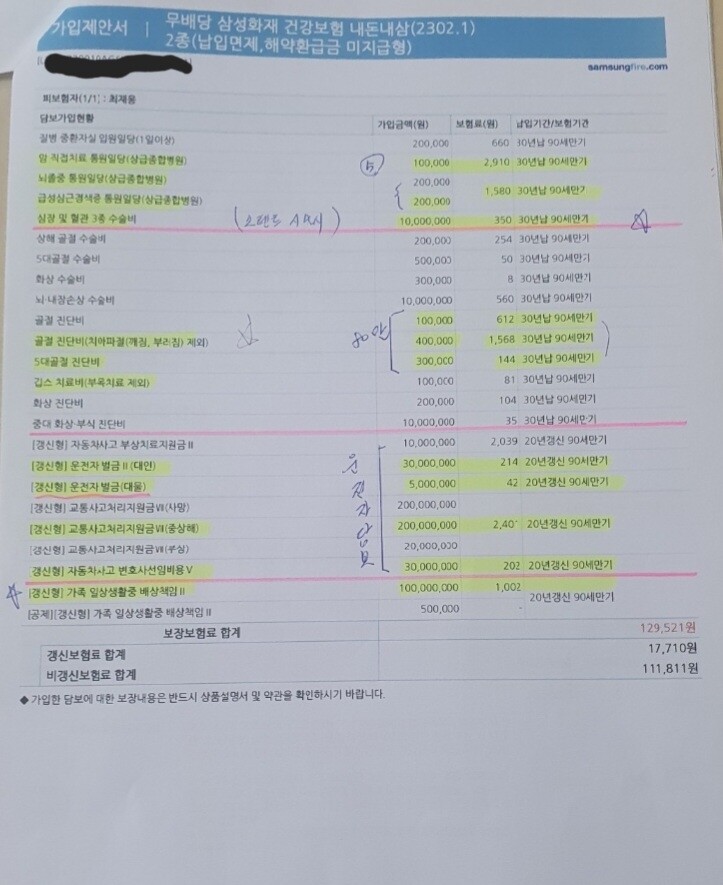 가입제안서 | 무배당 삼성화재 건강보험 내돈내삼(2302.1)
2종(납입면제,해약환급금 미지급형)
samsungfire.com
피보험자(1/1) : 최재웅
담보가입현황 가입금액(원) 보험료(원) 납입기간/보험기간
질병 중환자실 입원일당(1일이상) 200,000 660 30년납 90세만기
암 직접치료 통원일당(상급종합병원) 5 100,000 2,910 30년납 90세만기
뇌졸중 통원일당(상급종합병원) 200,000
1,580 30년납 90세만기
급성심근경색증 통원일당(상급종합병원) 200,000
심장 및 혈관 3종 수술비 10,000,000 350 30년납 90세만기
상해 골절 수술비 200,000 254 30년납 90세만기
5대골절 수술비 500,000 50 30년납 90세만기
화상 수술비 300,000 8 30년납 90세만기
뇌·내장손상 수술비 10,000,000 560 30년납 90세만기
골절 진단비 100,000 612 30년납 90세만기
골절 진단비(치아파절(깨짐, 부러짐) 제외) 80만 400,000 1,568 30년납 90세만기
5대골절 진단비 300,000 144 30년납 90세만기
깁스 치료비(부목치료 제외) 100,000 81 30년납 90세만기
화상 진단비 200,000 104 30년납 90세만기
중대 화상·부식 진단비 10,000,000 35 30년납 90세만기
[갱신형] 자동차사고 부상치료지원금 II 10,000,000 2,039 20년갱신 90세만기
[갱신형] 운전자 벌금 II (대인) 30,000,000 214 20년갱신 90세만기
[갱신형] 운전자 벌금(대물) 5,000,000 42 20년갱신 90세만기
[갱신형] 교통사고처리지원금VII(사망) 200,000,000
[갱신형] 교통사고처리지원금VII(중상해) 200,000,000 2,40 20년갱신 90세만기
[갱신형] 교통사고처리지원금VII(부상) 20,000,000
[갱신형] 자동차사고 변호사선임비용 V 30,000,000 202 20년갱신 90세만기
운전자담보
[갱신형] 가족 일상생활중 배상책임 II 100,000,000 1,002
20년갱신 90세만기
[공제][갱신형] 가족 일상생활중 배상책임 II 500,000 -
보장보험료 합계 129,521원
갱신보험료 합계 17,710원
비갱신보험료 합계 111,811원
◆ 가입한 담보에 대한 보장내용은 반드시 상품설명서 및 약관을 확인하시기 바랍니다.